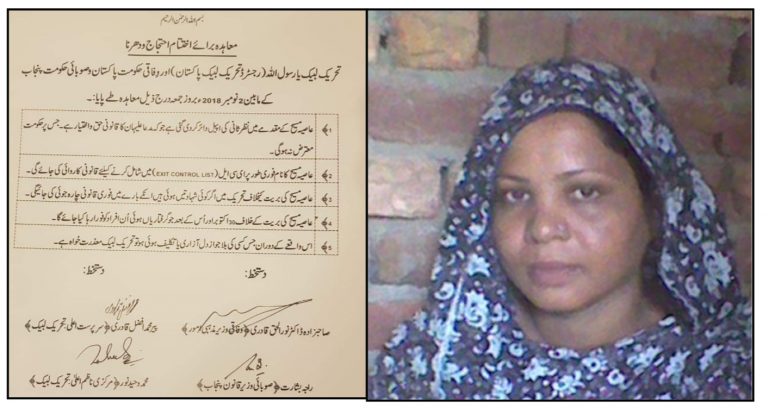 بسم اللہ الرحمن الرحیم
معاہدہ برائے اختتام احتجاج و دھرنا
تحریک لبیک یا رسول اللہ (رجسٹرڈ تحریک لبیک پاکستان) اور وفاقی حکومت پاکستان و صوبائی حکومت پنجاب
کے مابین 2 نومبر 2018ء بروز جمعہ درج ذیل معاہدہ طے پایا:۔
﴿1 عاصیہ مسیح کے مقدمے میں نظر ثانی کی اپیل دائر کر دی گئی ہے جو کہ مدعا علیہان کا قانونی حق و اختیار ہے۔ جس پر حکومت
معترض نہ ہوگی۔
﴿2 عاصیہ مسیح کا نام فوری طور پر ای سی ایل (EXIT CONTROL LIST) میں شامل کرنے کیلئے قانونی کاروائی کی جائے گی۔
﴿3 عاصیہ مسیح کی بریت کیخلاف تحریک میں اگر کوئی شہادتیں ہوئی ہیں انکے بارے میں فوری قانونی چارہ جوئی کی جائیگی۔
﴿4 عاصیہ مسیح کی بریت کے خلاف 30 اکتوبر اور اُس کے بعد جو گرفتاریاں ہوئی اُن افراد کو فوراً رہا کیا جائے گا۔
﴿5 اس واقعے کے دوران جس کسی کی بلا جواز دل آزاری یا تکلیف ہوئی ہو تو تحریک لبیک معذرت خواہ ہے۔
دستخط: دستخط:
صاحبزادہ ڈاکٹر نور الحق قادری ﴿وفاقی وزیر مذہبی امور﴾ پیر محمد افضل قادری ﴿سرپرست اعلیٰ تحریک لبیک﴾
راجہ بشارت ﴿صوبائی وزیر قانون پنجاب﴾ محمد وحید نور ﴿مرکزی ناظم اعلیٰ تحریک لبیک﴾